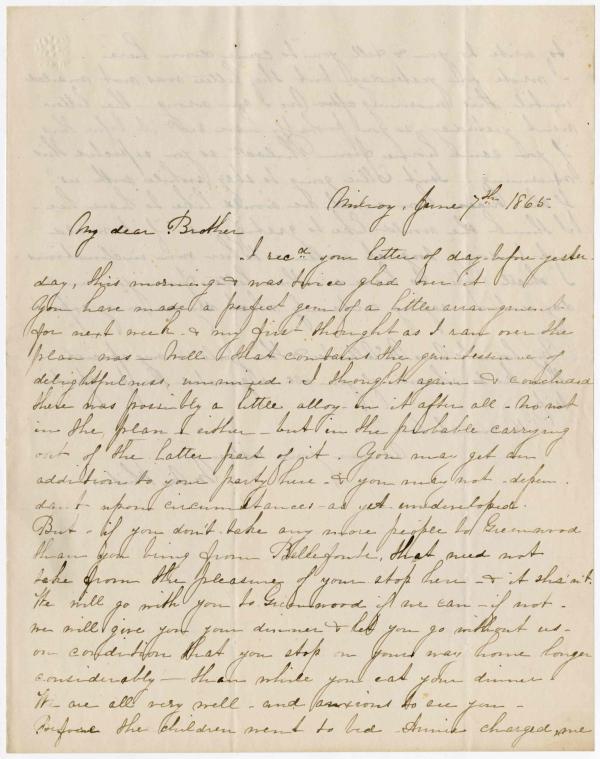 Milroy, June 7th 1865.
My dear Brother
I recd your letter of day before yester-
day, this morning & was twice glad over it
You have made a perfect gem of a little arrangement
for next week - & my first thought as I ran over the
plan was - Well - that contains the quintessence of
delightfulness, unmixed. I thought again - & concluded
there was possibly a little alloy in it after all - no not
in the plan - either - but in the probable carrying
out of the latter part of it. You may get an
addition to your party here - & you may not - depen-
dant upon circumstances as yet undeveloped.
But - if you don't take any more people to Greenwood
than you bring from Bellefonte, that need not
take from the pleasure of your stop here - & it sha'n't.
We will go with you to Greenwood if we can - if not -
we will give you your dinner & let you go without us -
on condition that you stop on your way home longer
considerably - than while you eat your dinner
We are all very well - and anxious to see you -
Before the children went to bed Annie charged me